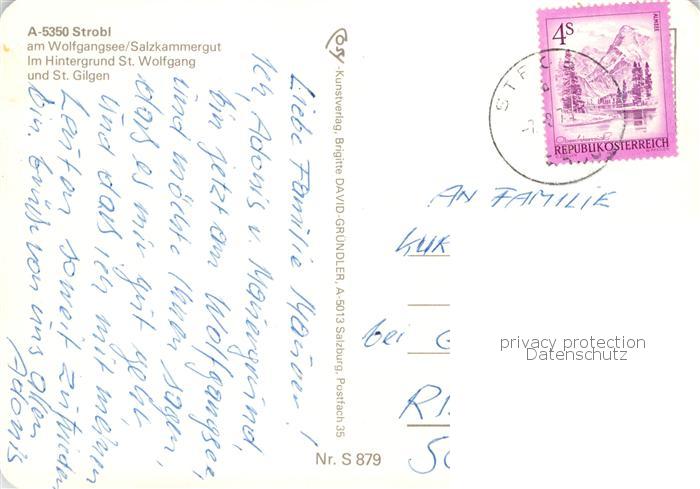 A-5350 Strobl
am Wolfgangsee/Salzkammergut
Im Hintergrund St. Wolfgang
und St. Gilgen
Liebe Familie Maurer!
Ich, Adonis v. Mariengrund,
bin jetzt am Wolfgangsee,
und möchte Ihnen sagen,
daß es mir gut geht
und daß ich mit meinen
Leuten soweit zufrieden
bin. Grüße von uns allen
Adonis
Kunstverlag, Brigitte DAVID-GRÜNDLER, A-5013 Salzburg, Postfach 35
Nr. S 879
4S
ALMSEE
REPUBLIK ÖSTERREICH
AN FAMILIE
KUR
bei G
privacy protection
Datenschutz